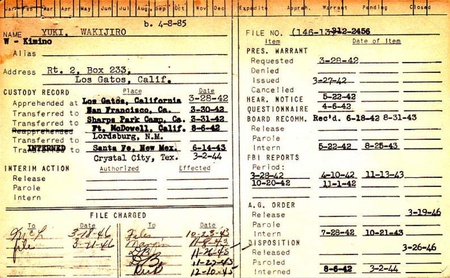 Jul Aug Sept Oct Nov Dec
Expedite Appeal Warrant Pending Closed
b. 4-8-85
NAME YUKI, WAKIJIRO
W - Kimino
Alias
Address Rt. 2, Box 233,
Los Gatos, Calif.
CUSTODY RECORD Place Date
Apprehended at Los Gatos, California 3-28-42
Transferred to San Francisco, Ca. 3-30-42
Transferred to Sharps Park Camp, Ca. 3-31-42
Reapprehended Ft. McDowell, Calif. 8-6-42
Transferred to Lordsburg, N.M.
INTERNED Santa Fe, New Mex. 6-14-43
Crystal City, Tex. 3-2-44
INTERIM ACTION Authorized Effected
Release
Parole
Intern
FILE CHARGED
To Date To Date
3-18-46 Files 10-23-43
file 3-21-46 11-8-43
11-26-43
11-27-43
12-10-43
FILE NO. (146-13
2-2456
Item Date of Item
PRES. WARRANT
Requested 3-28-42
Denied
Issued 3-27-42
Cancelled
HEAR. NOTICE 5-22-42
QUESTIONNAIRE 4-6-42
BOARD RECOMM. Rec'd. 6-18-42 8-31-43
Release
Parole
Intern 5-22-42 8-25-43
FBI REPORTS
Period:
3-28-42 4-10-42 11-13-43
10-20-42 11-1-42
A.G. ORDER
Release 3-19-46
Parole
Intern 7-28-42 10-21-43
DISPOSITION
Released 3-26-46
Paroled
Interned 8-6-42 3-2-44